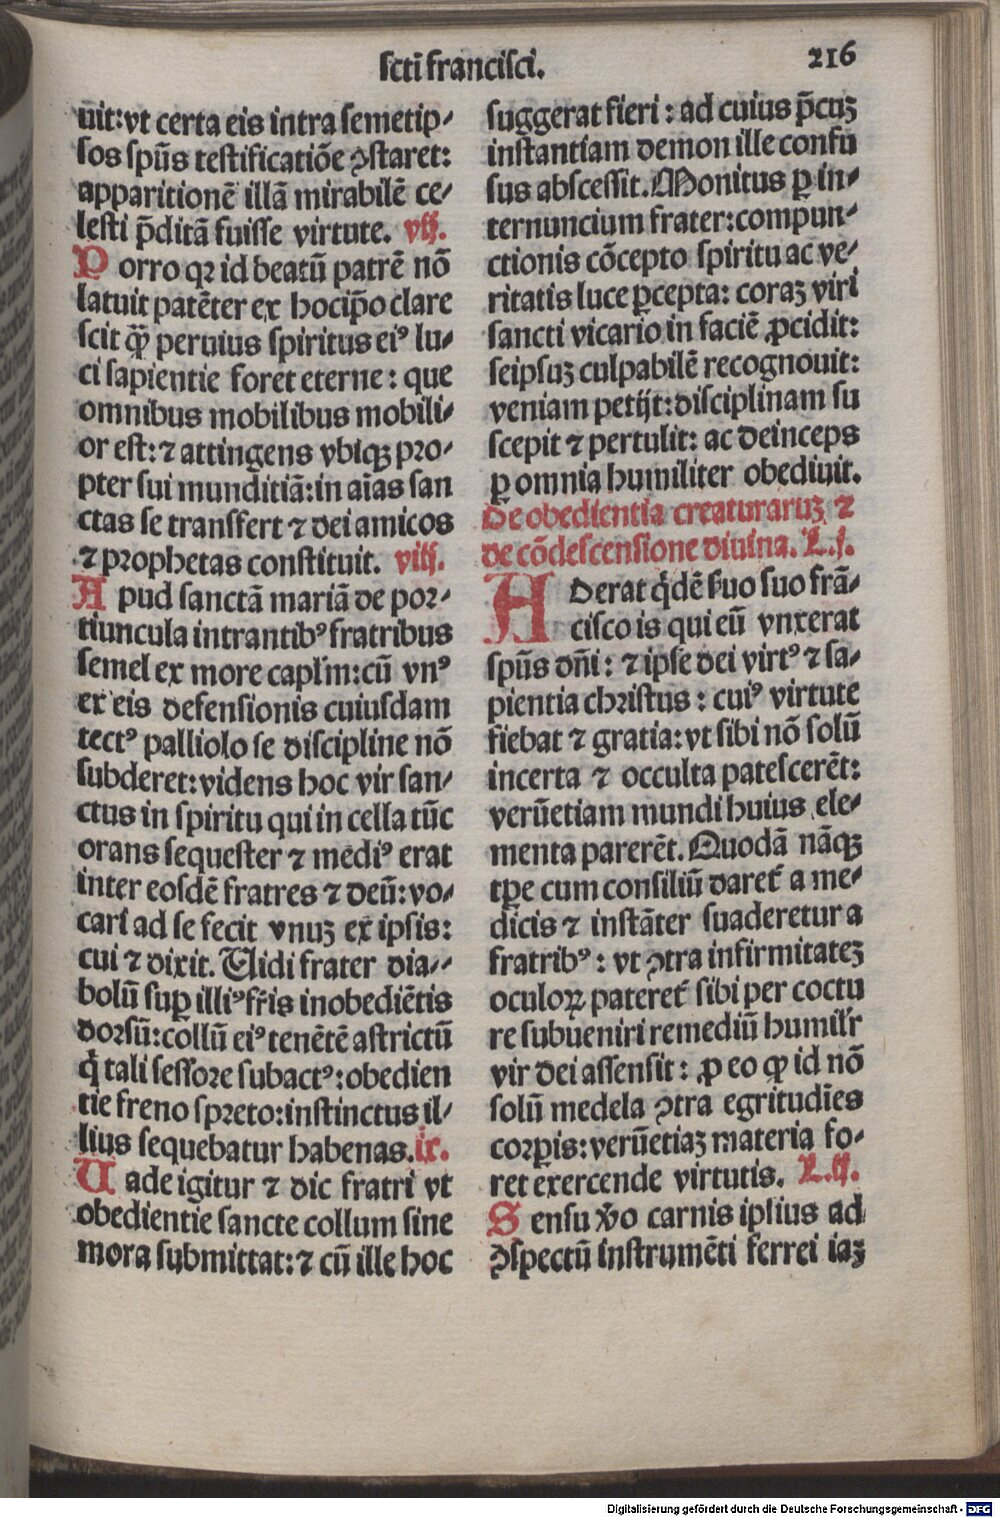 scti̅ francisci.
216
uit: vt certa eis intra semetip⸗
sos spu̅s testificatio̅e ꝯstaret:
apparitione̅ illa̅ mirabile̅ ce⸗
lesti p̅dita̅ fuisse virtute. vij.
Porro qꝛ id beatu̅ patre̅ no̅
latuit pate̅ter ex hocip̅o clare
scit ꝙ̅ peruius spiritus eiꝰ lu⸗
ci sapientie foret eterne: que
omnibus mobilibus mobili⸗
or est: ⁊ attingens vbiqꝫ pro⸗
pter sui munditia̅: in ai̅as san
ctas se transfert ⁊ dei amicos
⁊ prophetas constituit. viij.
Apud sancta̅ maria̅ de por⸗
tiuncula intrantibꝰ fratribus
semel ex more capl'm: cu̅ vnꝰ
ex eis defensionis cuiusdam
tectꝰ palliolo se discipline no̅
subderet: videns hoc vir san⸗
ctus in spiritu qui in cella tu̅c
orans sequester ⁊ mediꝰ erat
inter eosde̅ fratres ⁊ deu̅: vo⸗
cari ad se fecit vnuꝫ ex ipsis:
cui ⁊ dixit. Uidi frater dia⸗
bolu̅ suꝑ illiꝰ fr̅is inobedie̅tis
dorsu̅: collu̅ eiꝰ tene̅te̅ astrictu̅
q̇ tali sessore subactꝰ: obedien
tie freno spreto: instinctus il⸗
lius sequebatur habenas. ix.
Uade igitur ⁊ dic fratri vt
obedientie sancte collum sine
mora submittat: ⁊ cu̅ ille hoc
suggerat fieri: ad cuius p̅cuꝫ
instantiam demon ille confu
sus abscessit. Monitus ꝑ in⸗
ternuncium frater: compun⸗
ctionis co̅cepto spiritu ac ve⸗
ritatis luce ꝑcepta: coraꝫ viri
sancti vicario in facie̅ ꝓcidit:
seipsuꝫ culpabile̅ recognouit:
veniam petijt: disciplinam su
scepit ⁊ pertulit: ac deinceps
ꝑ omnia humiliter obediuit.
De obedientia creaturaruꝫ ⁊
de co̅descensione diuina. L.j.
ADerat q̇de̅ s̅uo suo fra̅⸗
cisco is qui eu̅ vnxerat
spu̅s dn̅i: ⁊ ipse dei virtꝰ ⁊ sa⸗
pientia christus: cuiꝰ virtute
fiebat ⁊ gratia: vt sibi no̅ solu̅
incerta ⁊ occulta patescere̅t:
veru̅etiam mundi huius ele⸗
menta parere̅t. Quoda̅ na̅qꝫ
tꝑe cum consiliu̅ daret᷑ a me⸗
dicis ⁊ insta̅ter suaderetur a
fratribꝰ: vt ꝯtra infirmitateꝫ
oculoꝝ pateret᷑ sibi per coctu
re subueniri remediu̅ humil'r
vir dei assensit: ꝓ eo ꝙ id no̅
solu̅ medela ꝯtra egritudi̅es
corꝑis: veru̅etiaꝫ materia fo⸗
ret exercende virtutis. L.ij.
Sensu v̊o carnis ipsius ad
ꝯspectu̅ instrume̅ti ferrei iaꝫ
Digitalisierung gefördert durch die Deutsche Forschungsgemeinschaft - DFG